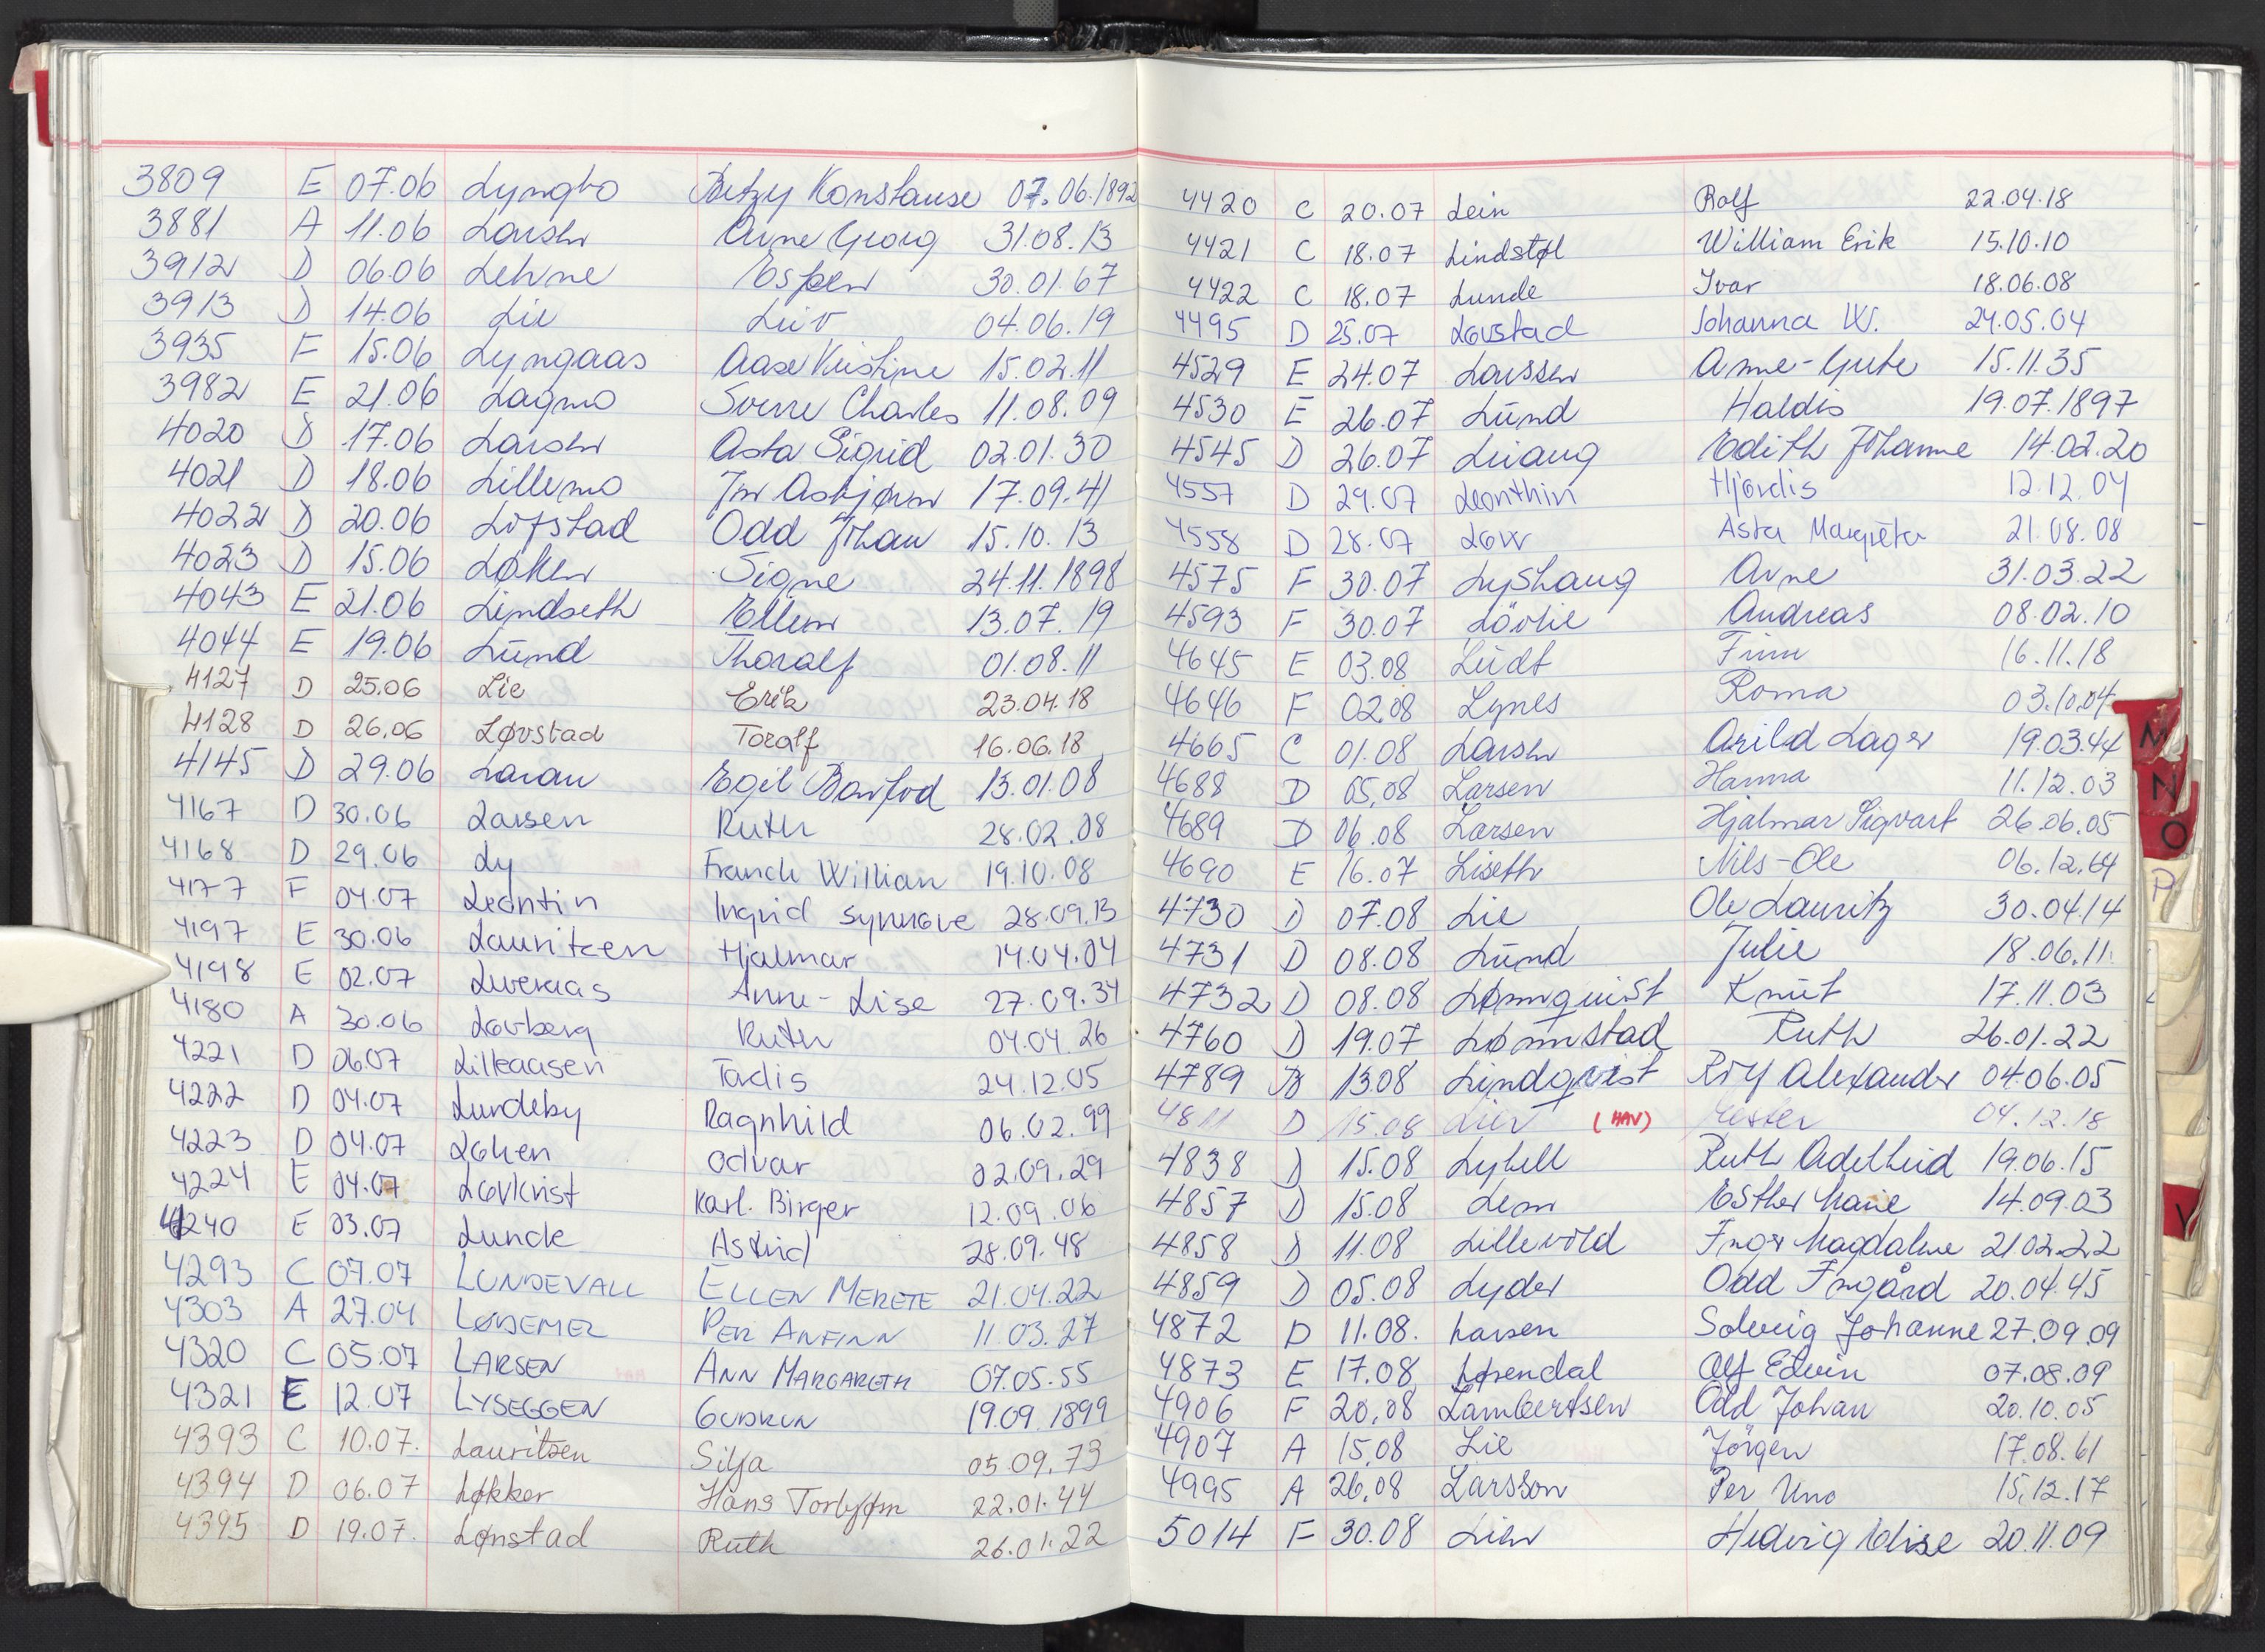 3809 E 07.06 Lyngbo Betzy Konstanse 07.06.1892
3881 A 11.06 Larsen Arne Georg 31.08.13
3912 D 06.06 Lehne Espen 30.01.67
3913 D 14.06 Lie Liv 04.06.19
3935 F 15.06 Lyngaas Aase Kristine 15.02.11
3982 E 21.06 Lagmo Sverre Charles 11.08.09
4020 D 17.06 Larsen Asta Sigrid 02.01.30
4021 D 18.06 Lillemo Asbjørn 17.09.41
4022 D 20.06 Løfstad Odd Johan 15.10.13
4023 D 15.06 Løken Signe 24.11.1898
4043 E 21.06 Lindseth Ellen 13.07.19
4044 E 19.06 Lund Thoralf 01.08.11
4127 D 25.06 Lie Erik 23.04.18
4128 D 26.06 Løvstad Toralf 16.06.18
4145 D 29.06 Egil Barfod 13.01.08
4167 D 30.06 Larsen Ruth 28.02.08
4168 D 29.06 Ly Franck Willian 19.10.08
4177 F 04.07 Leontin Ingrid Synnøve 28.09.13
4197 E 30.06 Lauritzen Hjalmar 14.04.04
4198 E 02.07 Anne-Lise 27.09.34
4180 A 30.06 Løvberg Ruth 04.04.26
4221 D 06.07 Lilleaasen Tordis 24.12.05
4222 D 04.07 Lundeby Ragnhild 06.02.99
4223 D 04.07 Løken Odvar 02.09.29
4224 E 04.07 Løvkvist Karl. Birger 12.09.06
4240 E 03.07 Lunde Astrid 28.09.48
4293 C 07.07 LUNDEVALL ELLEN MERETE 21.04.22
4303 A 27.04 LØDEMEL PER ANFINN 11.03.27
4320 C 05.07 LARSEN ANN MARGARETH 07.05.55
4321 E 12.07 LYSEGGEN GUDRUN 19.09.1899
4393 C 10.07. Lauritsen Silja 05.09.73
4394 D 06.07 Løkker Hans Torbjørn 22.01.44
4395 D 19.07. Lønstad Ruth 26.01.22
4420 C 20.07 Lein Rolf 22.04.18
4421 C 18.07 Lindstøl William Erik 15.10.10
4422 C 18.07 Lunde Ivar 18.06.08
4495 D 25.07 Løvstad Johanna W. 24.05.04
4529 E 24.07 Larssen Anne-Grete 15.11.35
4530 E 26.07 Lund Haldis 19.07.1897
4545 D 26.07 Liaug Edith Johanne 14.02.20
4557 D 29.07 Leonthin Hjørdis 12.12.04
4558 D 28.07 Løw Asta Margreta 21.08.08
4575 F 30.07 Lyshaug Arne 31.03.22
4593 F 30.07 Lövlie Andreas 08.02.10
4645 E 03.08 Lüdt Finn 16.11.18
4646 F 02.08 Lynes Roma 03.10.04
4665 C 01.08 Larsen Arild Lager 19.03.44
4688 D 05.08 Larsen Hanna 11.12.03
4689 D 06.08 Larsen Hjalmar Sigvart 26.06.05
4690 E 16.07 Liseth Nils-Ole 06.12.64
4730 D 07.08 Lie Ole Lauritz 30.04.14
4731 D 08.08 Lund Julie 18.06.11
4732 D 08.08 Lønnquist Knut 17.11.03
4760 D 19.07 Lønnstad Ruth 26.01.22
4789 B 13.08 Lindqvist Roy Alexander 04.06.05
4811 D 15.08 Lien (HAV) Hester 04.12.18
4838 D 15.08 Lybell Ruth Adelheid 19.06.15
4857 D 15.08 Lem Esther Marie 14.09.03
4858 D 11.08 Lillevold Inger Magdalene 21.02.22
4859 D 05.08 Lyder Odd Ingård 20.04.45
4872 D 11.08. Larsen Solveig Johanne 27.09.09
4873 E 17.08 Løsendal Alf Edvin 07.08.09
4906 F 20.08 Lambertsen Odd Johan 20.10.05
4907 A 15.08 Lie Jörgen 17.08.61
4995 A 26.08 Larsson Per Uno 15.12.17
5014 F 30.08 Lien Hedvig Elise 20.11.09
M
N
O
P
V